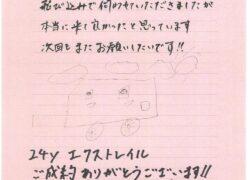 飛び込みで伺わせていただきましたが
本当に来て良かったと思っています
次回もまたお願いしたいです!!
24y エクストレイル
ご成約ありがとうございます!!